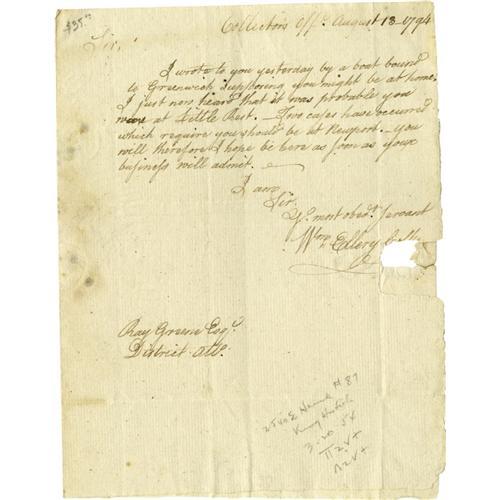 $35.00
Collectors Offe. August 13 - 1794
Sir,
I wrote to you yesterday by a boat bound
to Greenwich supposing you might be at home.
I just now heard that it was probable you
were at Little Rest. - Two cases have occurred
which require you should be at Newport. - You
will therefore I hope be here as soon as your
business will admit. -
I am,
Sir,
Yr. most obedt. servant
Wm Ellery Collr
Ray Greene Esqr.
District Atty.
#87
3-20 54